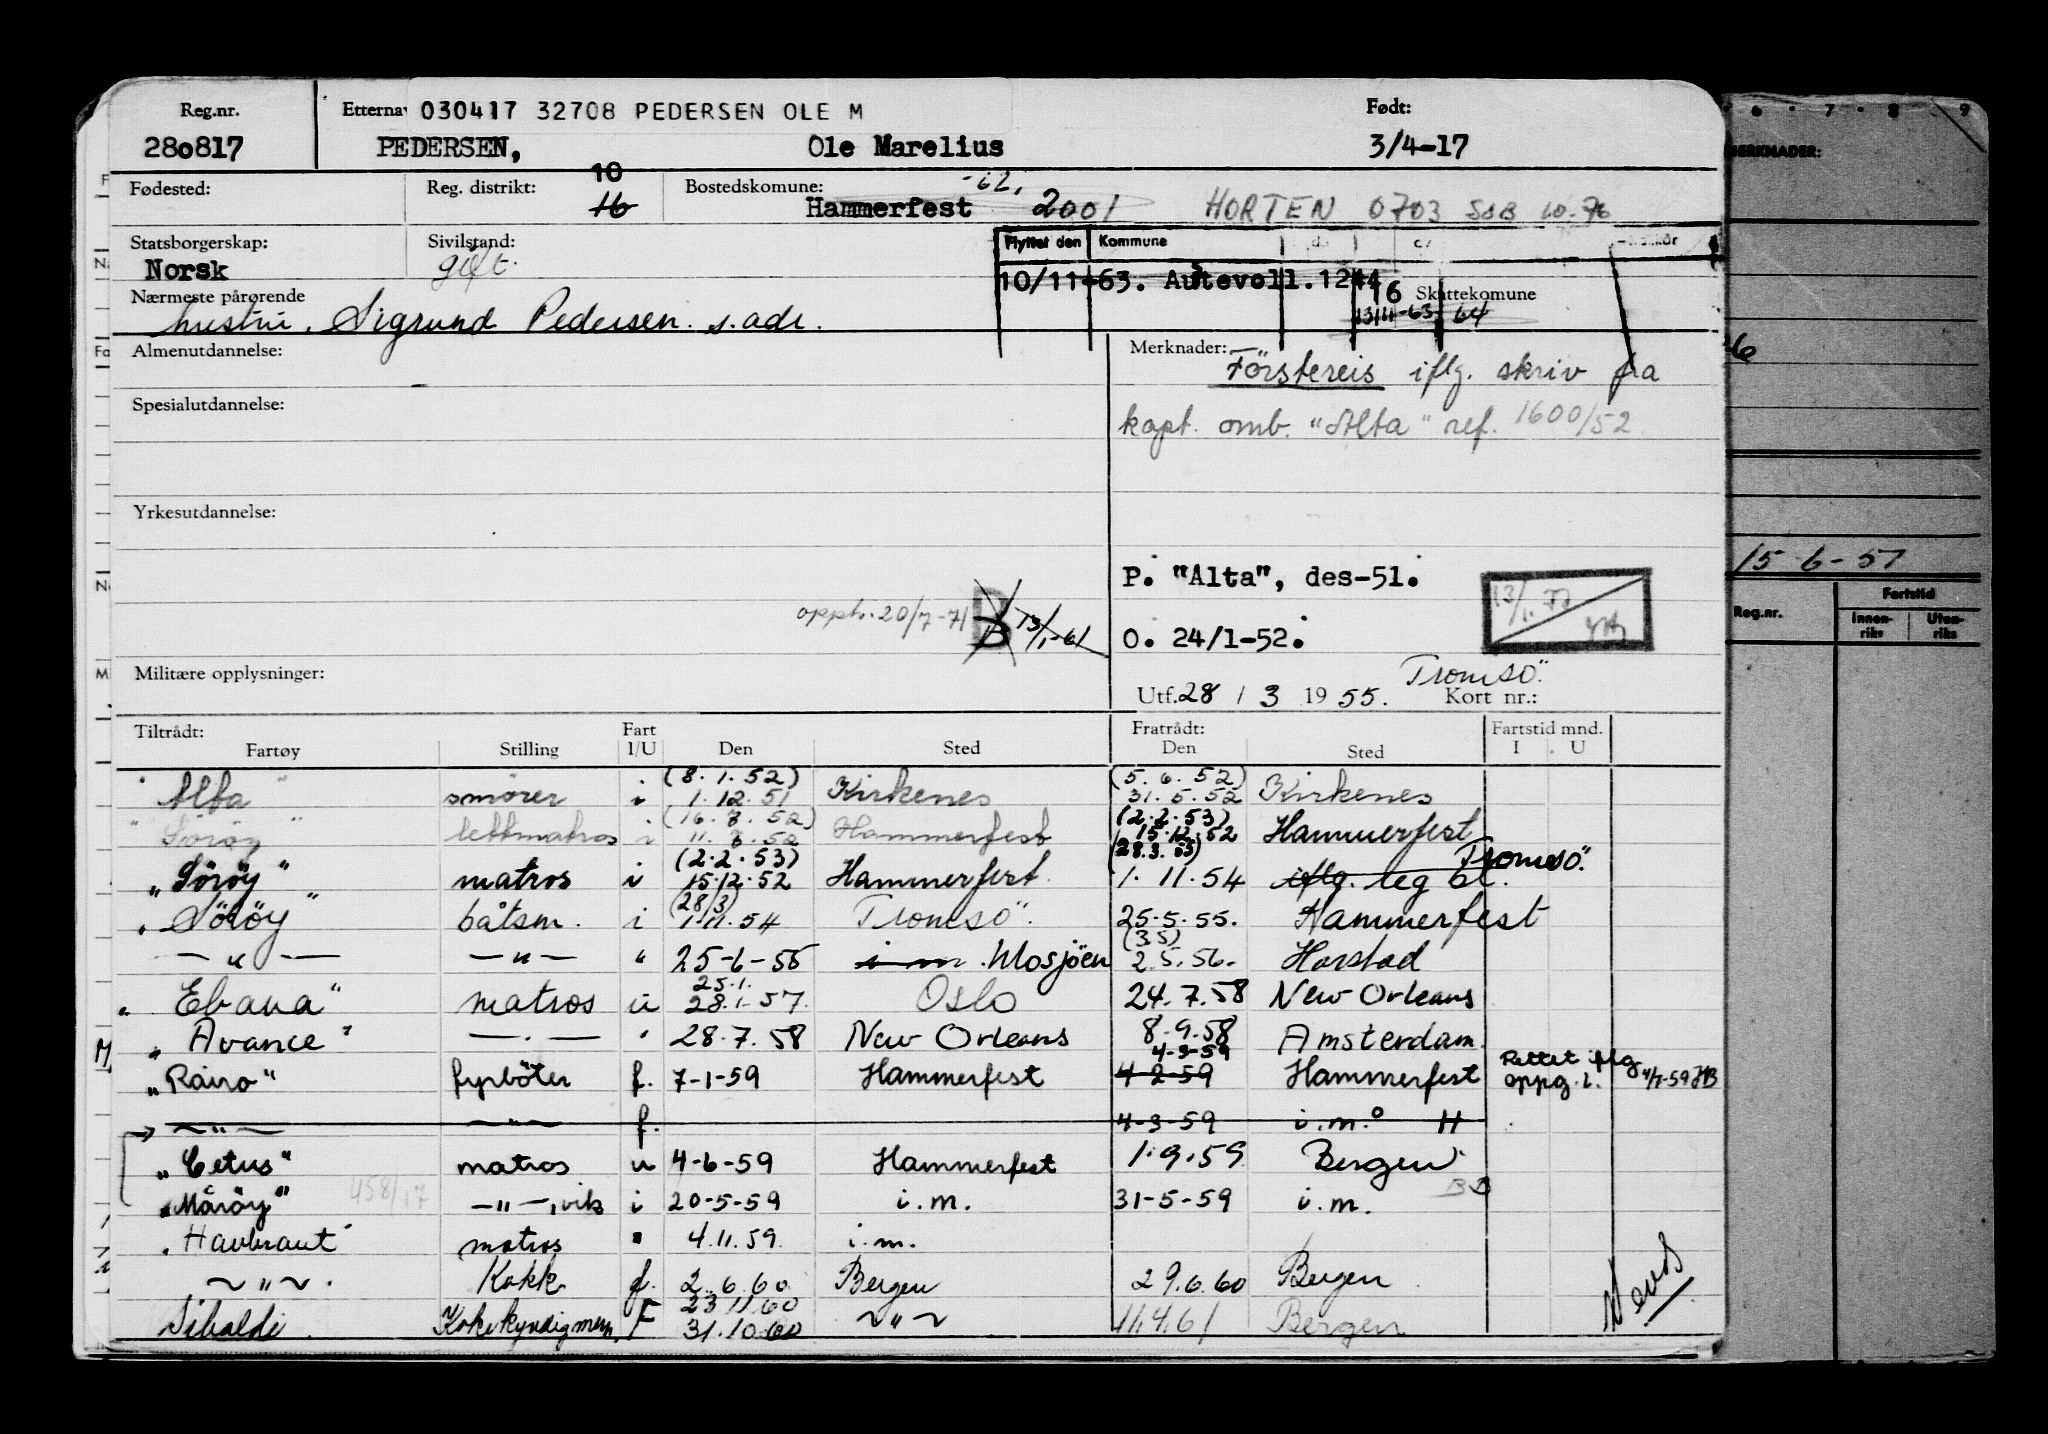 Reg.nr. Etternav 030417 32708 PEDERSEN OLE M Født:
280817 PEDERSEN, Ole Marelius 3/4-17
Fødested: Reg. distrikt: 10 16 Bostedskomune: Hammerfest -62, 2001 HORTEN 0703 SSB 10-76
Statsborgerskap: Norsk Sivilstand: gift. Flyttet den Kommune
10/11-63. Austevoll.1244 16 Skattekomune
13/11-63 64
Nærmeste pårørende
hustru, Sigrund Pedersen. s.adr.
Almenutdannelse: Merknader: Förstereis iflg. skriv fra
Spesialutdannelse: kapt. omb. "Alta" ref. 1600/52
Yrkesutdannelse:
P. "Alta", des-51.
opph. 20/7-71 B 13/1-61 O. 24/1-52.
Militære opplysninger: Tromsö.
Utf. 28 / 3 1955. Kort nr.:
Tiltrådt: Fart Fratrådt: Fartstid mnd.
Fartøy Stilling I/U Den Sted Den Sted I U
(8.1.52) (5.6.52)
"Alta" smører i 1.12.51 Kirkenes 31.5.52 Kirkenes
(16.7.52) (2.2.53)
"Söröy" lettmatros i 11.7.52 Hammerfest 15.12.52 Hammerfest
(2.2.53) (28.3.53) Tromsö.
"Söröy" matros i 15.12.52 Hammerfest. 1.11.54 iflg. teg bl.
(28/3)
"Söröy" båtsm. i 1.11.54 Tromsö". 25.5.55. Hammerfest
(3.5)
— " — — " — " 25-6-55 i m. Mosjöen 2.5.56. Harstad
25.1.
"Ebana" matros u 28.1.57. Oslo 24.7.58 New Orleans
"Avance" — . — " 28.7.58 New Orleans 8.9.58 Amsterdam.
4-3-59 Rettet iflg
"Rairo" fyrböter f. 7-1-59 Hammerfest 4-2-59 Hammerfest oppg. i. 4/7-59 HB
— " — — " — f. 4-3-59 i.m. H
"Cetus" matros u 4-6-59 Hammerfest 1.9.59 Bergen
"Måröy" 458/17 — " —, vik i 20-5-59 i.m. 31-5-59 i.m.
"Havbraut" matros " 4.11.59. i.m.
~ " ~ . Kokk f. 2.6.60 Bergen 29.6.60 Bergen
23.11.60
Sibaldi. Kokekyndigmem. F 31.10.60 ~ " ~ 11.4.61 Bergen
6 7 8 9
MERKNADER:
15-6-57
Reg.nr. Fartstid
Innen-riks Uten-riks